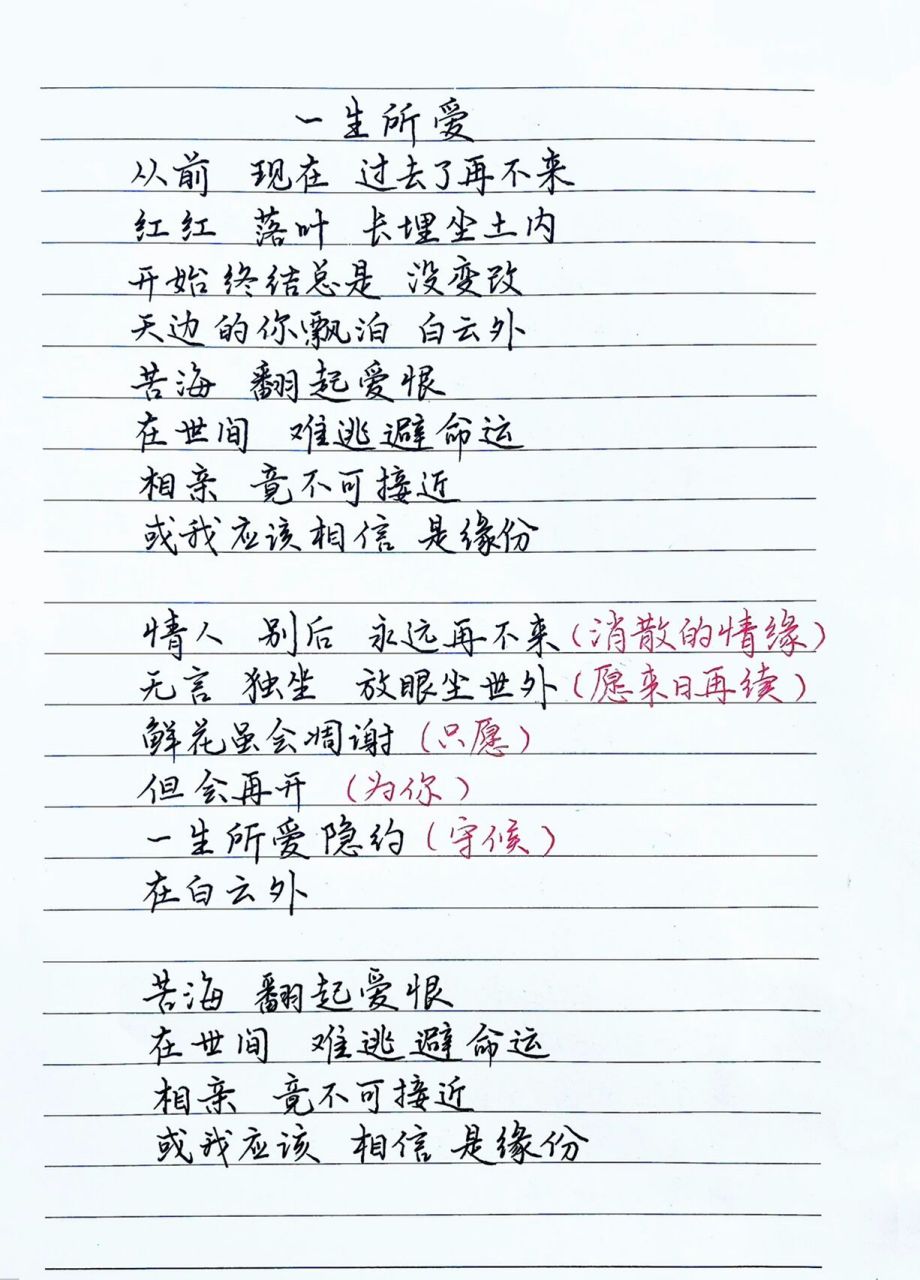 一生所爱
从前 现在 过去了再不来
红红 落叶 长埋尘土内
开始终结总是 没变改
天边的你飘泊 白云外
苦海 翻起爱恨
在世间 难逃避命运
相亲 竟不可接近
或我应该相信 是缘份
情人 别后 永远再不来(消散的情缘)
无言 独坐 放眼尘世外(愿来日再续)
鲜花虽会凋谢(只愿)
但会再开(为你)
一生所爱隐约(守候)
在白云外
苦海 翻起爱恨
在世间 难逃避命运
相亲 竟不可接近
或我应该 相信 是缘份